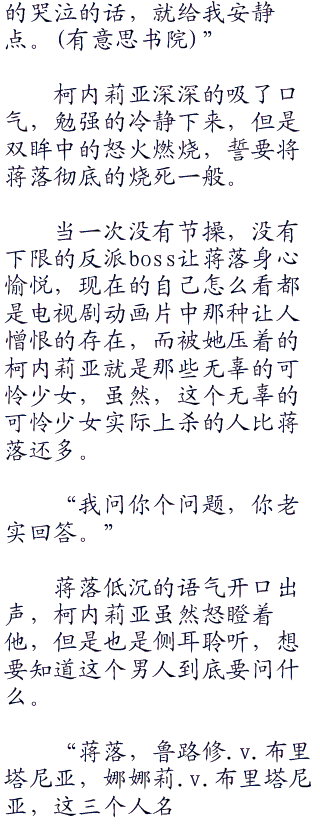 的哭泣的话，就给我安静
点。(有意思书院)”
柯内莉亚深深的吸了口
气，勉强的冷静下来，但是
双眸中的怒火燃烧，誓要将
蒋落彻底的烧死一般。
当一次没有节操，没有
下限的反派boss让蒋落身心
愉悦，现在的自己怎么看都
是电视剧动画片中那种让人
憎恨的存在，而被她压着的
柯内莉亚就是那些无辜的可
怜少女，虽然，这个无辜的
可怜少女实际上杀的人比蒋
落还多。
“我问你个问题，你老
实回答。”
蒋落低沉的语气开口出
声，柯内莉亚虽然怒瞪着
他，但是也是侧耳聆听，想
要知道这个男人到底要问什
么。
“蒋落，鲁路修.v.布里
塔尼亚，娜娜莉.v.布里塔尼
亚，这三个人名